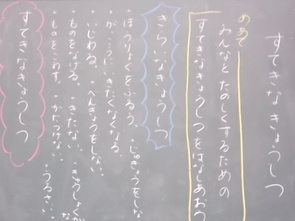 すてきなきょうしつ
めあて
みんなとたのしくするための
すてきなきょうしつをはなしあお
きらいなきょうしつ
・ぼうりょくをふるう。
・じゅぎょうをしな
・がっこうにきたくなくなる。
・いじわる。
・べんきょうをしない。
・ものをなげる。
・きたない。
・きゅうしょくが
・ものをこわす。
・かたづけない。
・うるさい
すてきなきょうしつ